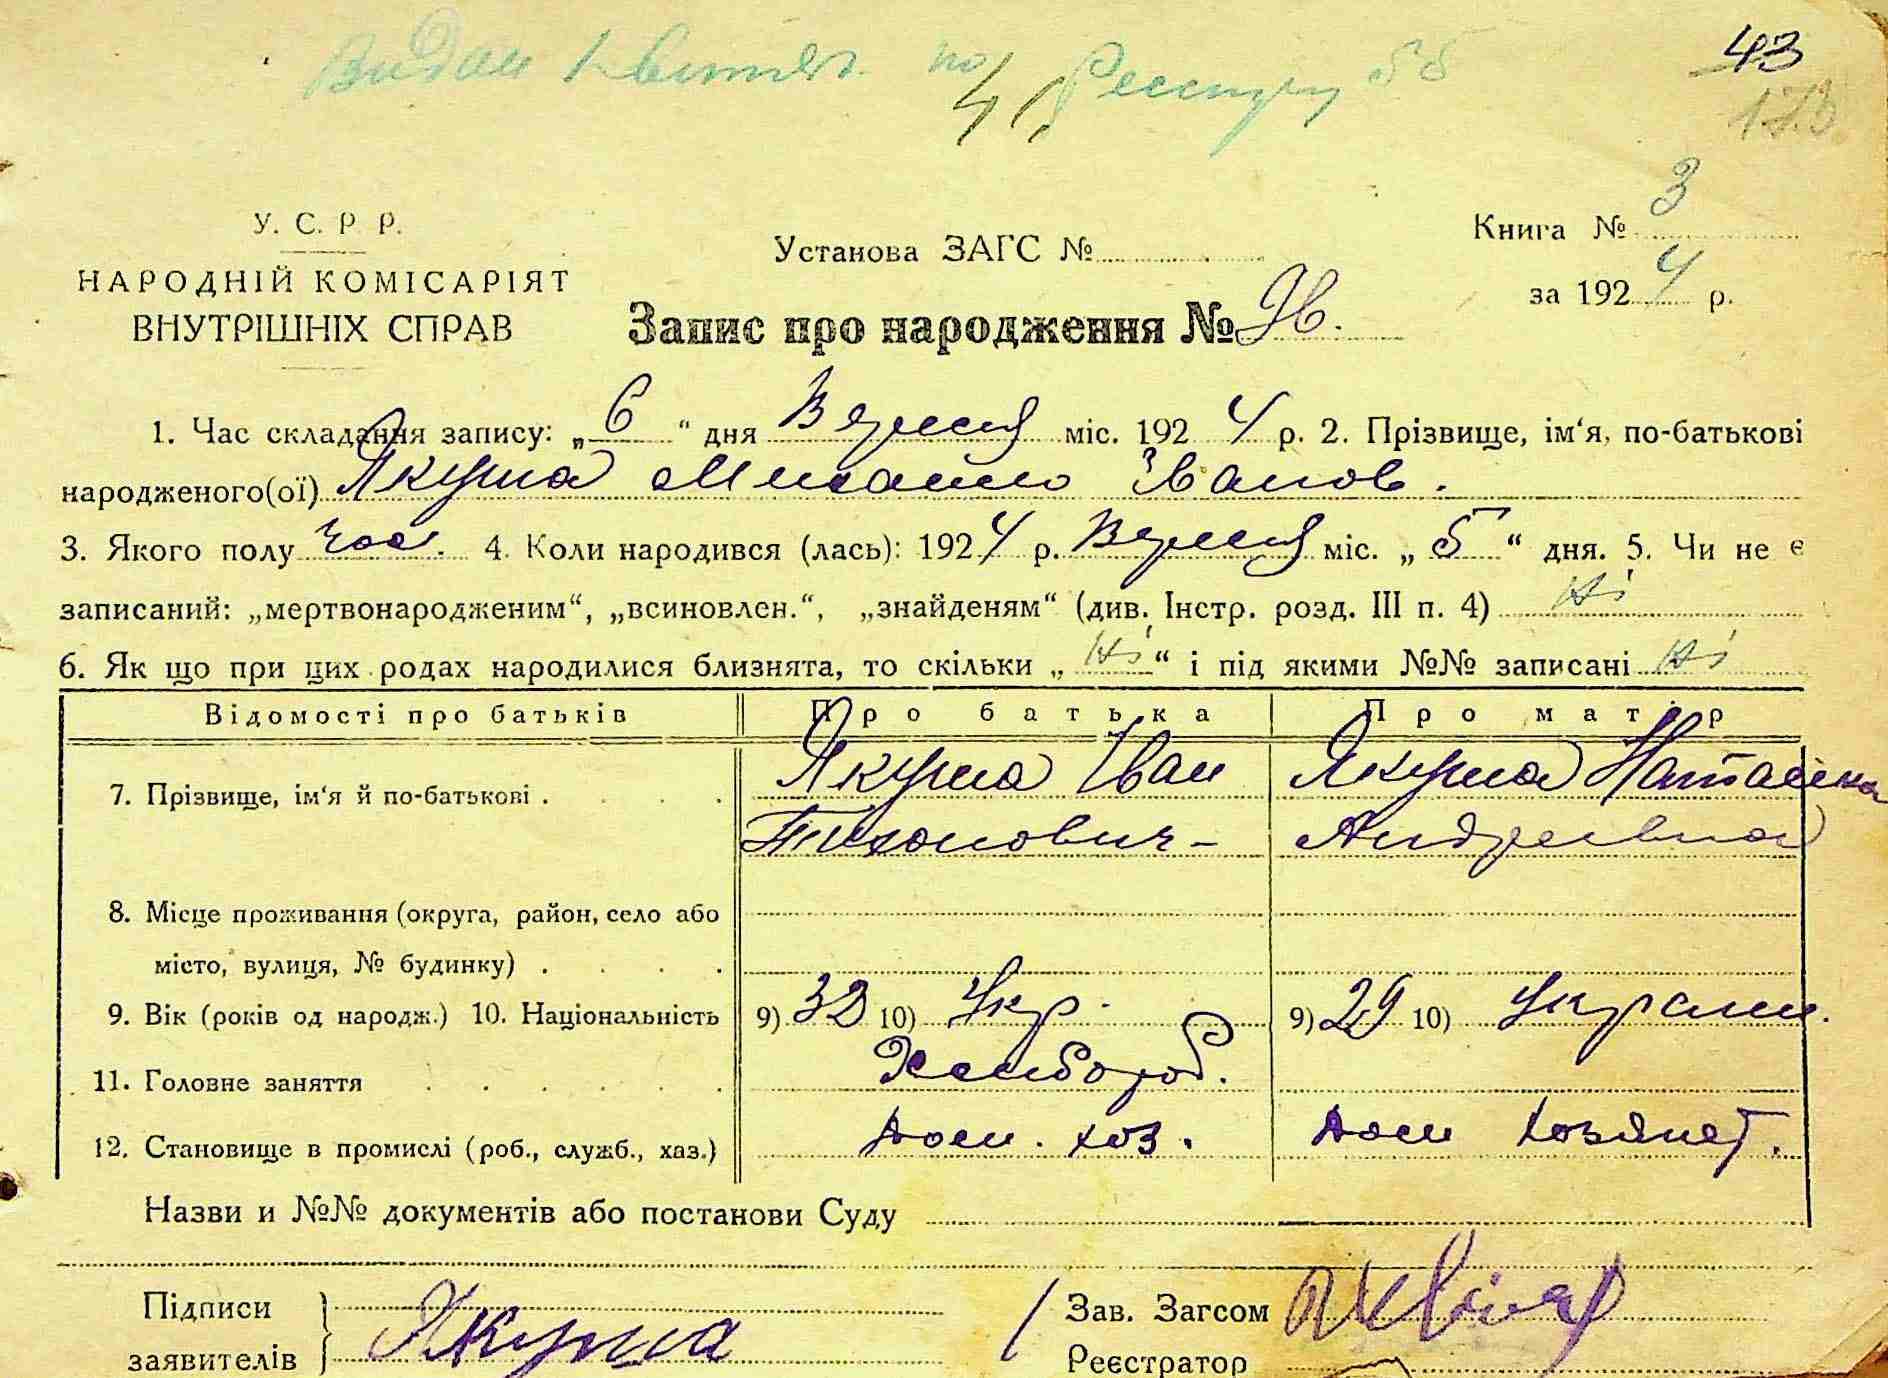 Видан 1 по Реестру 55
43
173
У. С. Р. Р.
НАРОДНІЙ КОМІСАРІЯТ
ВНУТРІШНІХ СПРАВ
Установа ЗАГС №
Книга № 3
за 1924 р.
Запис про народження №
1. Час складання запису: „6“ дня Вересня міс. 1924 р. 2. Прізвище, ім‘я, по-батькові
народженого(ої) Якуша Михайло Іванов.
3. Якого полу чол. 4. Коли народився (лась): 1924 р. Вересня міс. „5“ дня. 5. Чи не є
записаний: „мертвонародженим“, „всиновлен.“, „знайденям“ (див. Інстр. розд. III п. 4) Ні
6. Як що при цих родах народилися близнята, то скільки „Ні“ і під якими №№ записані Ні
Відомості про батьків Про батька Про матір
7. Прізвище, ім‘я й по-батькові . . . . Якуша Іван Якуша Наталка
Тихонович- Андреівна
8. Місце проживання (округа, район, село або
місто, вулиця, № будинку) . . . .
9. Вік (років од народж.) 10. Національність 9) 32 10) Укр. 9) 29 10) Украін.
11. Головне заняття . . . . . . Хлібороб.
12. Становище в промислі (роб., служб., хаз.) Дом. хоз. Дом хозяйст.
Назви и №№ документів або постанови Суду
Підписи
заявителів } Якуша
Зав. Загсом
Реєстратор